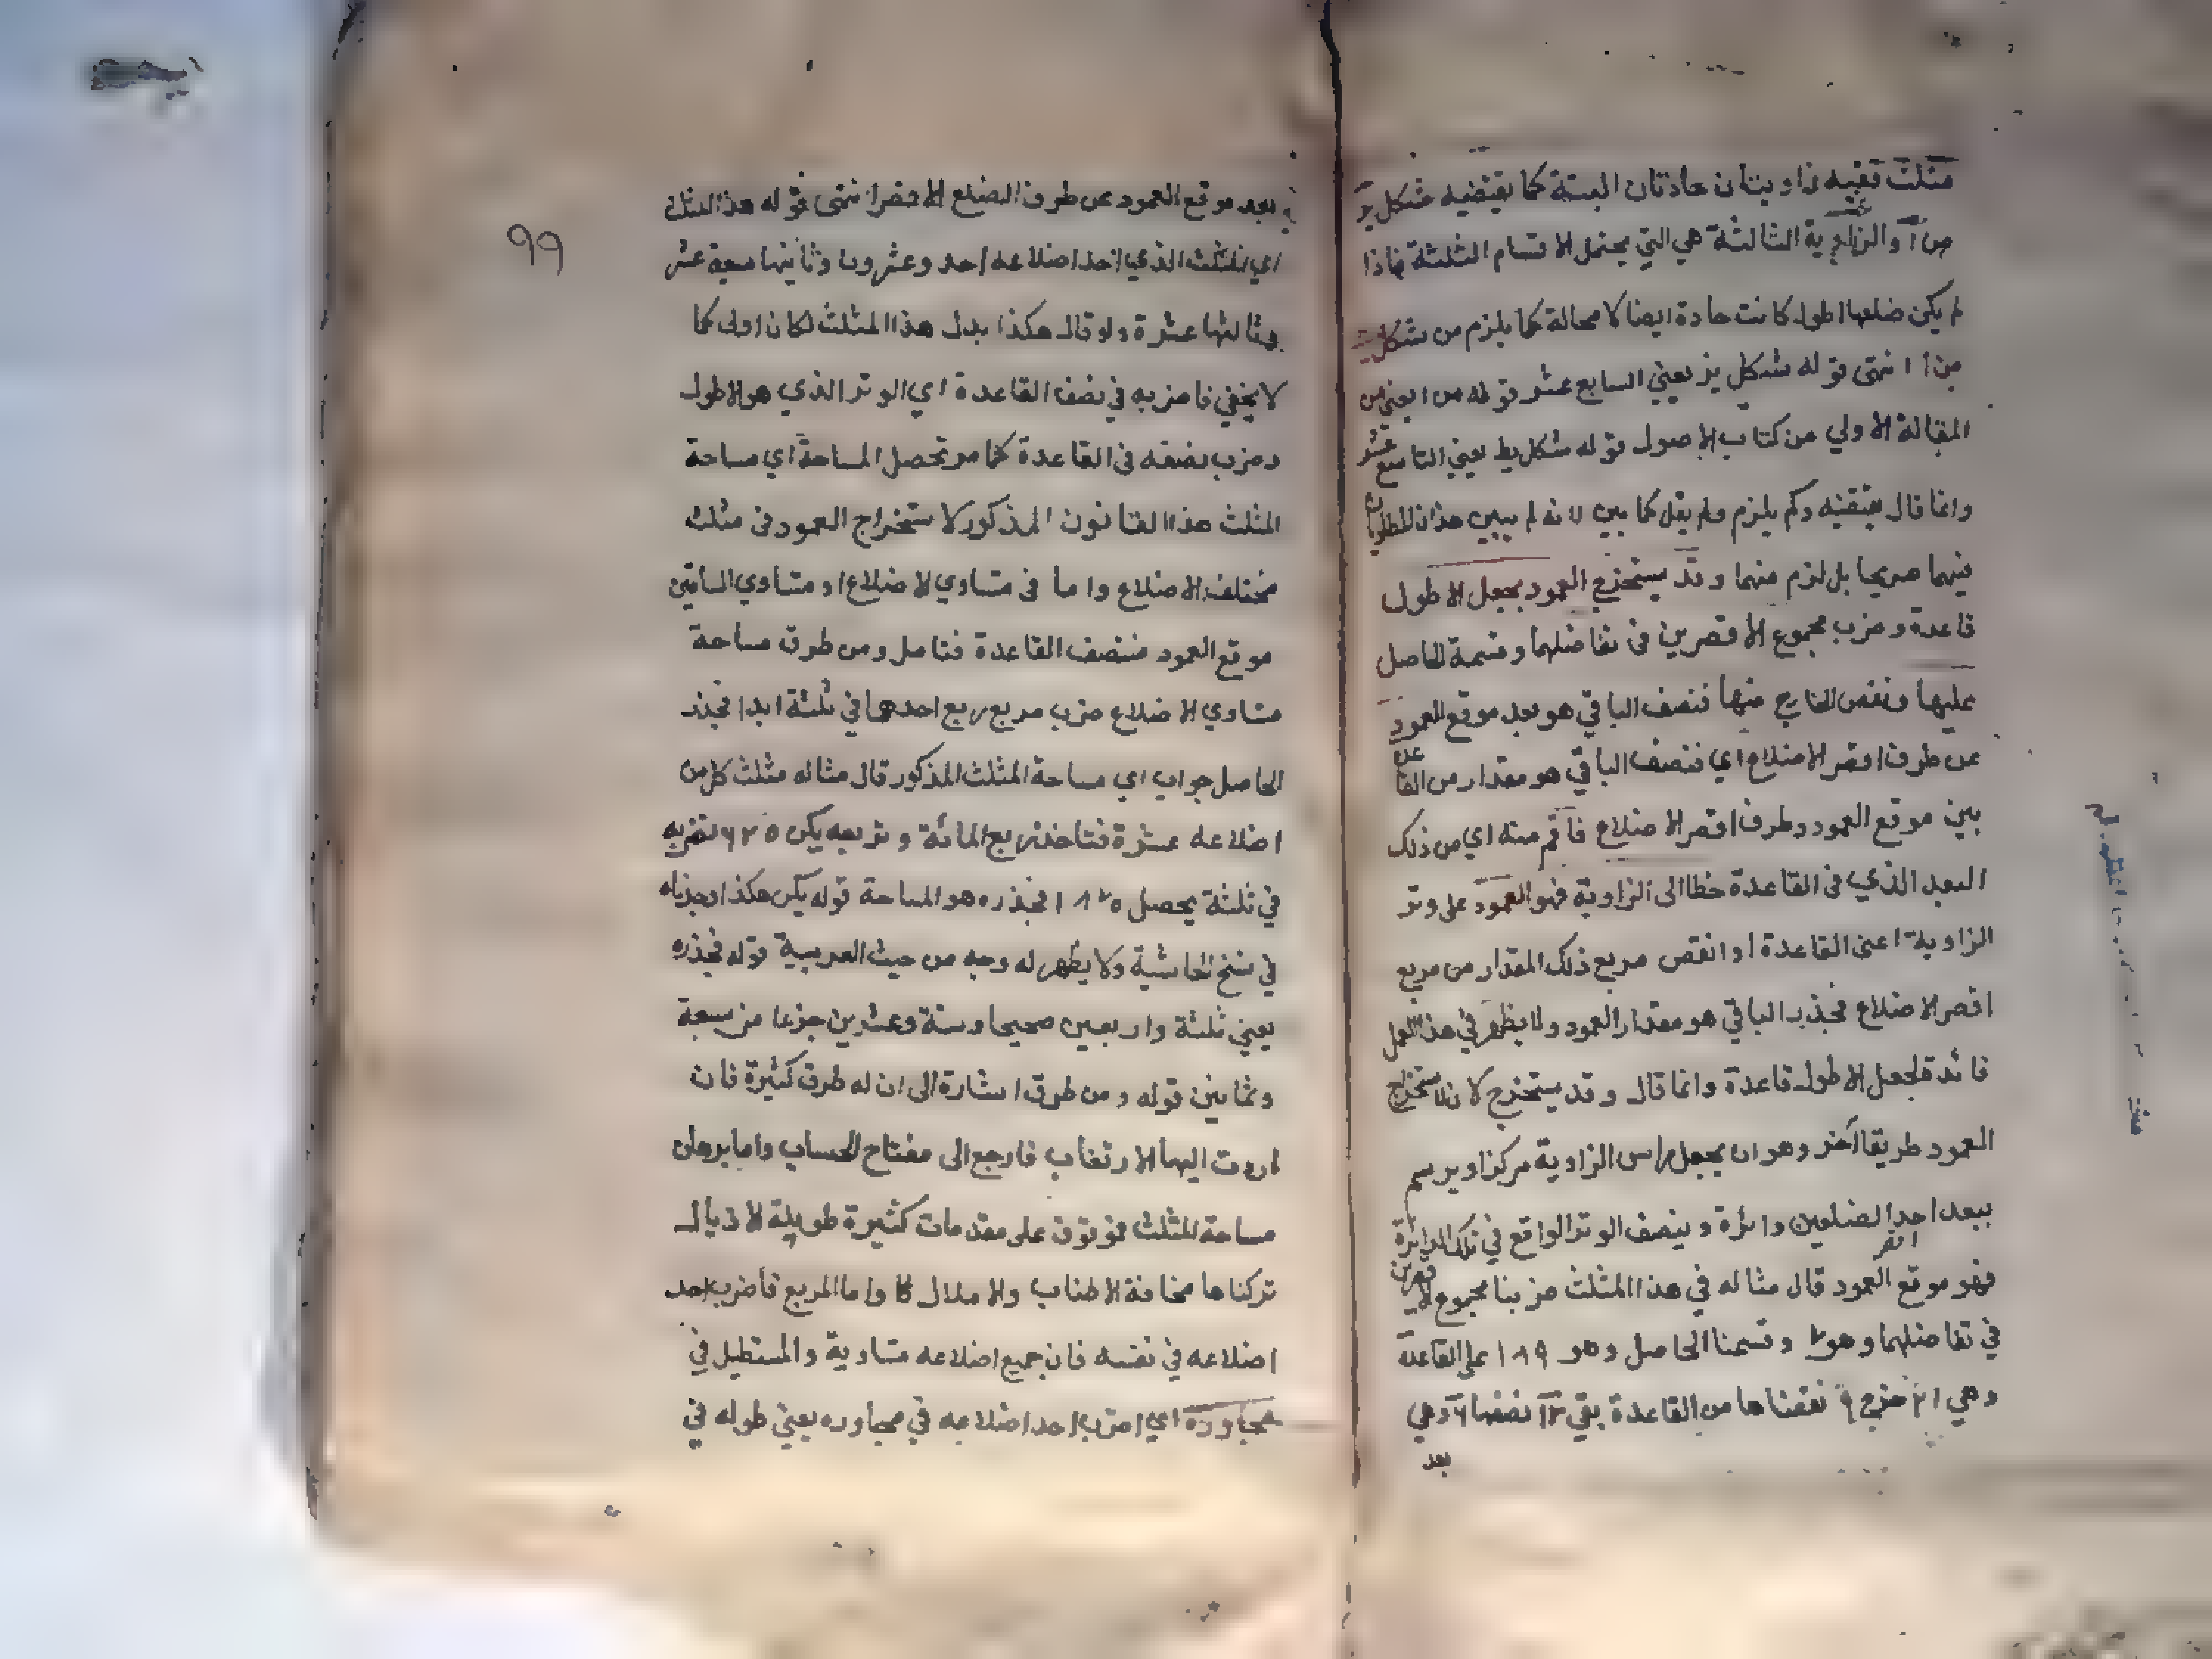 مثلث ففيه زاويتان حادتان البتة كما يقتضيه شكل يز
من آ والزاوية الثالثة هي التي يحتمل الاقسام الثلثة فاذا
لم يكن ضلعها اطول كانت حادة ايضا لا محالة كما يلزم من شكل
من ا انتهى قوله شكل يز يعني السابع عشر قوله من ا يعني من
المقالة الاولي من كتاب الاصول قوله شكل يط يعني التاسع عشر
وانما قال يقتضيه وكم يلزم ولم يقل كما بين لانه لم يبين هذان المطلوبان
فيهما صريحا بل لزم منهما وقد يستخرج العمود بجعل الاطول
قاعدة وضرب مجموع الاقصرين في تفاضلهما وقسمة الحاصل
عليها ونقص الخارج منها فنصف الباقي هو بعد موقع العمود
عن طرف اقصر الاضلاع اي فنصف الباقي هو مقدار من القاعدة
بين موقع العمود وطرف اقصر الاضلاع فاقم منه اي من ذلك
البعد الذي في القاعدة خطا الى الزاوية فهو العمود على وتر
الزاوية اعني القاعدة او انقص مربع ذلك المقدار من مربع
اقصر الاضلاع فجذر الباقي هو مقدار العمود ولا يظهر في هذا العمل
فائدة لجعل الاطول قاعدة وانما قال وقد يستخرج لان لاستخراج
العمود طريقا آخر وهو ان يجعل راس الزاوية مركزا ويرسم
ببعد احد الضلعين دائرة وينصف الوتر الواقع في تلك الدائرة
اقصر
فهو موقع العمود قال مثاله في هذا المثلث ضربنا مجموع الاقصرين
في تفاضلهما وهو ٧ وقسمنا الحاصل وهو ١٨٩ على القاعدة
وهي ٢١ خرج ٩ نقصناها من القاعدة بقي ١٢ نصفها ٦ وهي
بعد
بعد موقع العمود عن طرف الضلع الاقصر انتهى قوله هذا المثلث
اي المثلث الذي احد اضلاعه احد وعشرون وثانيها سبعة عشر
وثالثها عشرة ولو قال هكذا بدل هذا المثلث لكان اولى كما
لا يخفي فاضربه في نصف القاعدة اي الوتر الذي هو الاطول
وضرب نصفه في القاعدة كما مر تحصل المساحة اي مساحة
المثلث هذا القانون المذكور لاستخراج العمود في مثلث
مختلف الاضلاع واما في متساوي الاضلاع او متساوي الساقين
موقع العمود منتصف القاعدة فتامل ومن طرق مساحة
متساوي الاضلاع ضرب مربع ربع احدهما في ثلثة ابدا فجذر
الحاصل جواب اي مساحة المثلث المذكور قال مثاله مثلث كل من
اضلاعه عشرة فتاخذ ربع المائة وتربعه يكن ٦٢٥ تضربه
في ثلثة يحصل ١٨٧٥ فجذره هو المساحة قوله يكن هكذا وجدناه
في نسخ الحاشية ولا يظهر له وجه من حيث العربية قوله فجذره
يعني ثلثة واربعين صحيحا وستة وعشرين جزءا من سبعة
وثمانين قوله ومن طرق اشارة الى ان له طرق كثيرة فان
اردت اليها الارتقاب فارجع الى مفتاح الحساب واما برهان
مساحة المثلث فموقوف على مقدمات كثيرة طويلة الاذيال
تركناها مخافة الاطناب والاملال واما المربع فاضرب احد
اضلاعه في نفسه فان جميع اضلاعه متساوية والمستطيل في
مجاوره اي اضرب احد اضلاعه في مجاوره يعني طوله في
٩٩